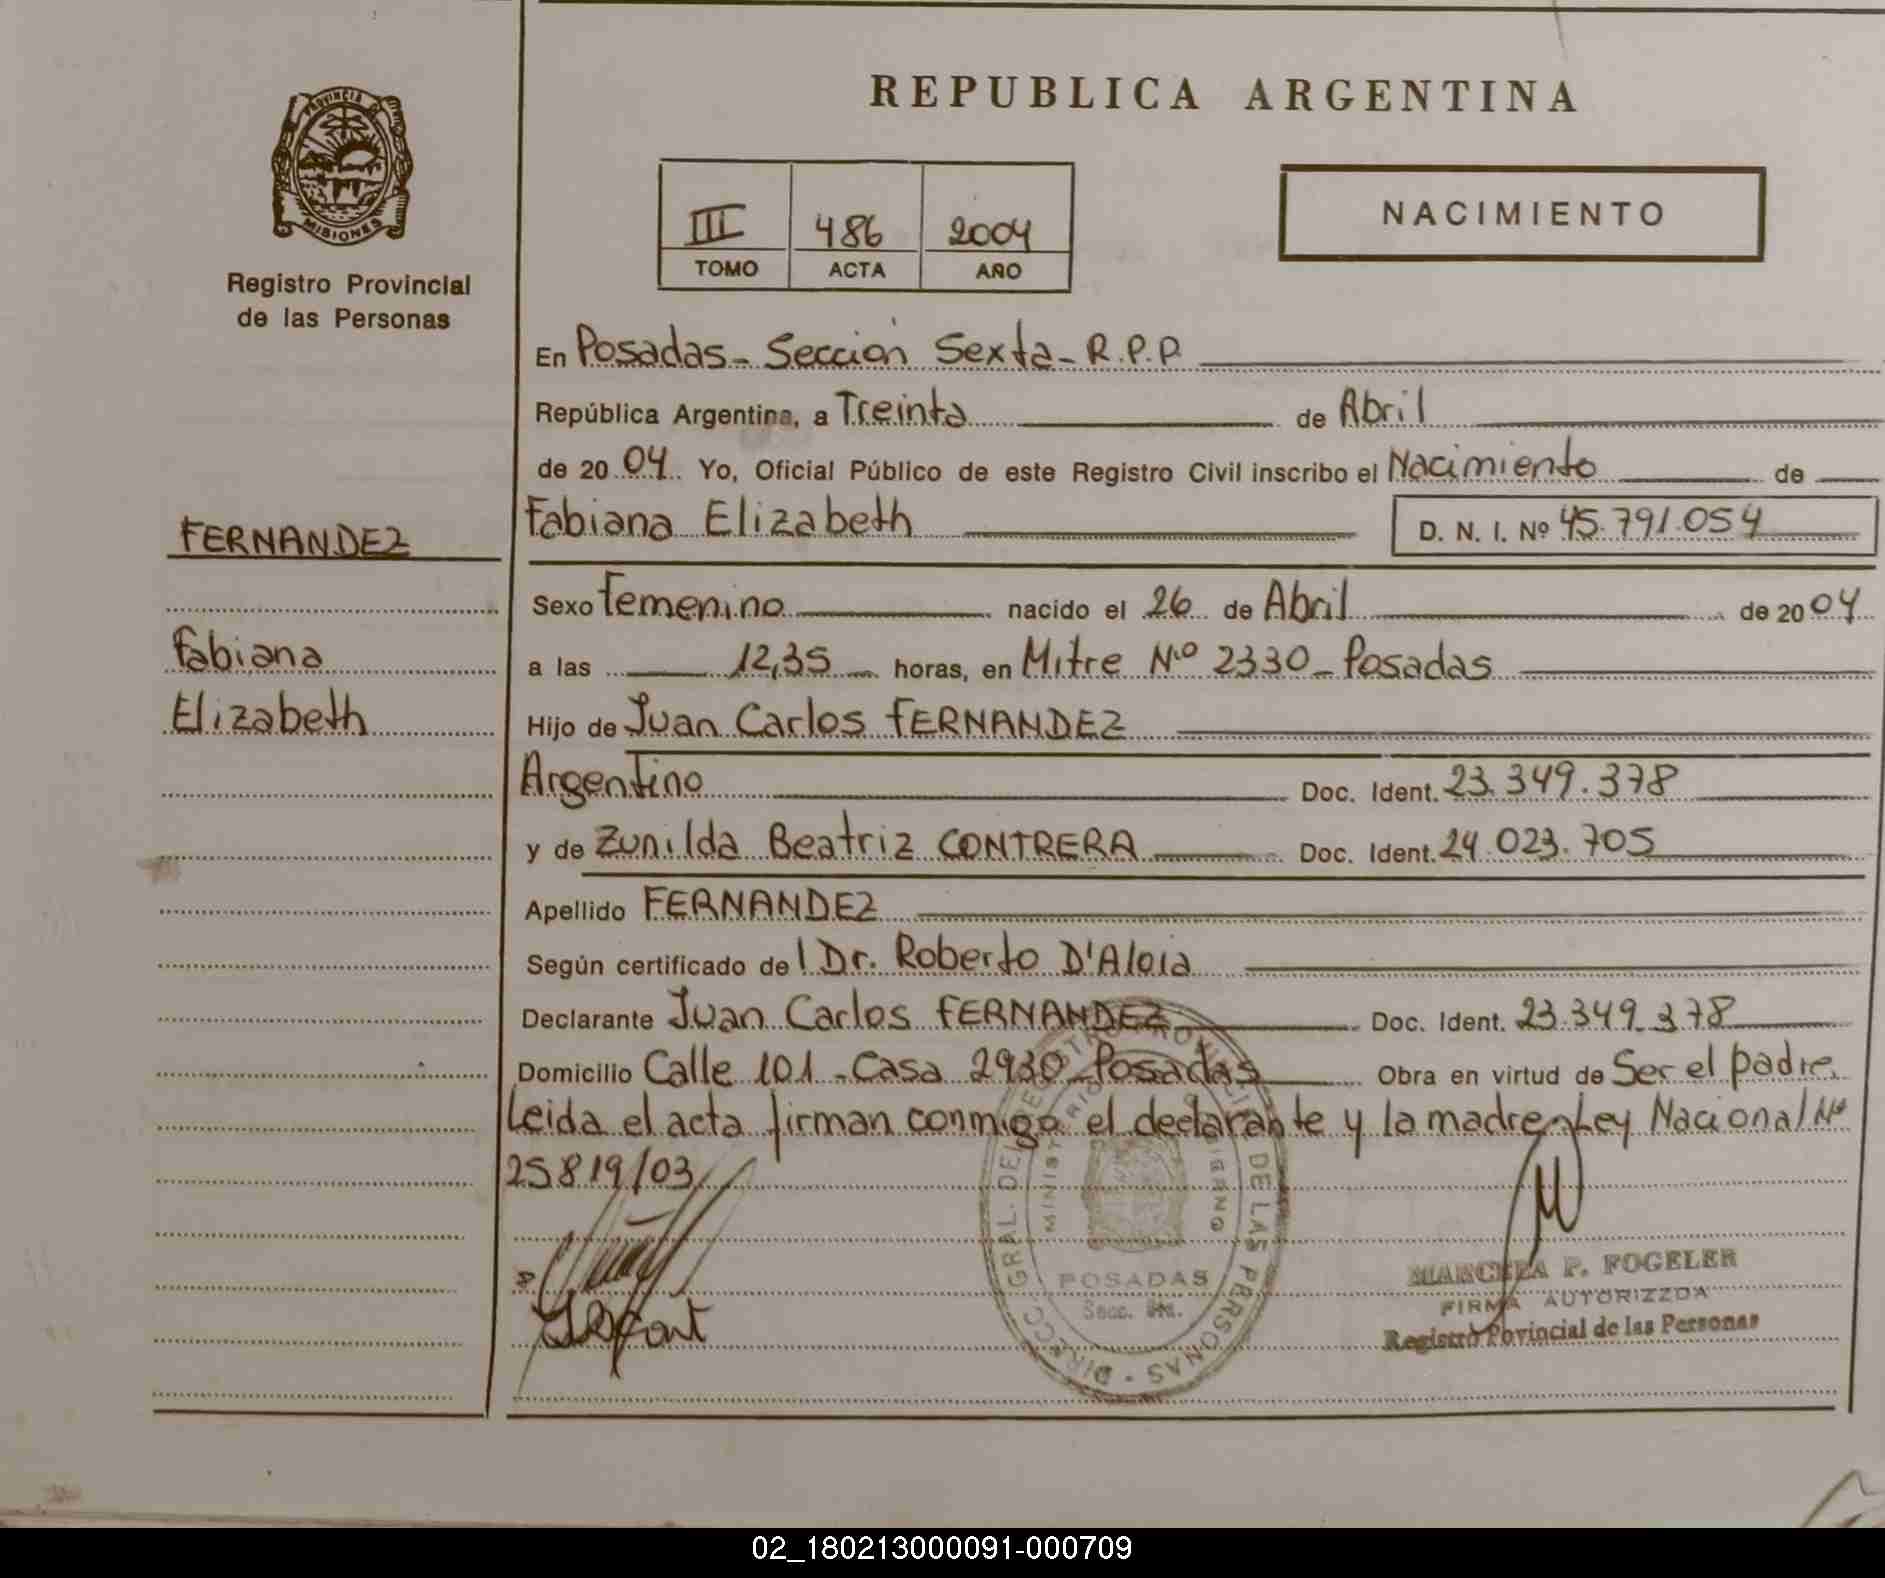 REPUBLICA ARGENTINA
PROVINCIA DE
MISIONES
Registro Provincial
de las Personas
III 486 2004
TOMO ACTA AÑO
NACIMIENTO
En Posadas - Sección Sexta - R.P.P.
República Argentina, a Treinta de Abril
de 2004 Yo, Oficial Público de este Registro Civil inscribo el Nacimiento de
FERNANDEZ
Fabiana Elizabeth D. N. I. Nº 45.791.054
Sexo Femenino nacido el 26 de Abril de 2004
Fabiana
a las 12,35 horas, en Mitre Nº 2330 - Posadas
Elizabeth
Hijo de Juan Carlos FERNANDEZ
Argentino Doc. Ident. 23.349.378
y de Zunilda Beatriz CONTRERA Doc. Ident. 24.023.705
Apellido FERNANDEZ
Según certificado del Dr. Roberto D'Aloia
Declarante Juan Carlos FERNANDEZ Doc. Ident. 23.349.378
Domicilio Calle 101 - Casa 2930 - Posadas Obra en virtud de Ser el padre.
Leida el acta firman conmigo el declarante y la madre - Ley Nacional Nº
25819/03
DIRECC. GRAL. DEL REGISTRO PROVINCIAL DE LAS PERSONAS
POSADAS
Secc.
MARCELA P. FOGELER
FIRMA AUTORIZZDA
Registro Povincial de las Personas
02_180213000091-000709